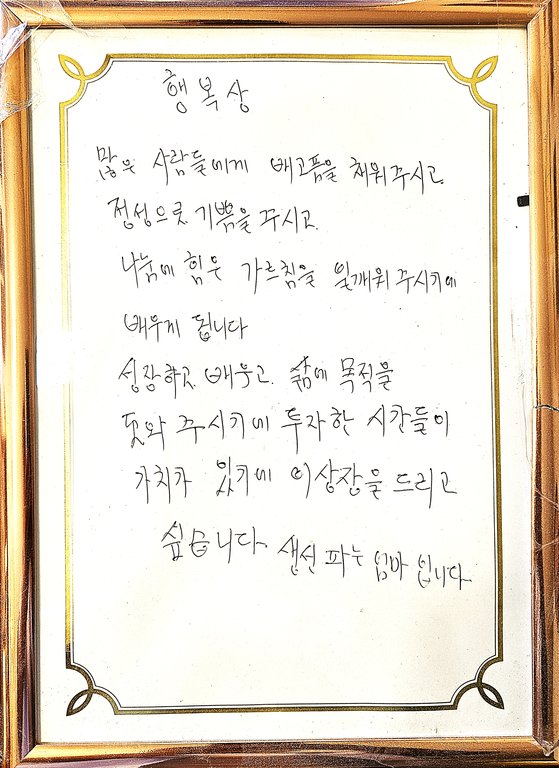 행복상
많은 사람들에게 배고픔을 채워주시고
정성으로 기쁨을 주시고
나눔에 힘은 가르침을 일깨워 주시기에
배우게 됩니다
성장하고 배웁고. 삶에 목적을
도와 주시기에 투자한 시간들이
가치가 있기에 이상장을 드리고
싶습니다. 생선 파는 엄마 입니다